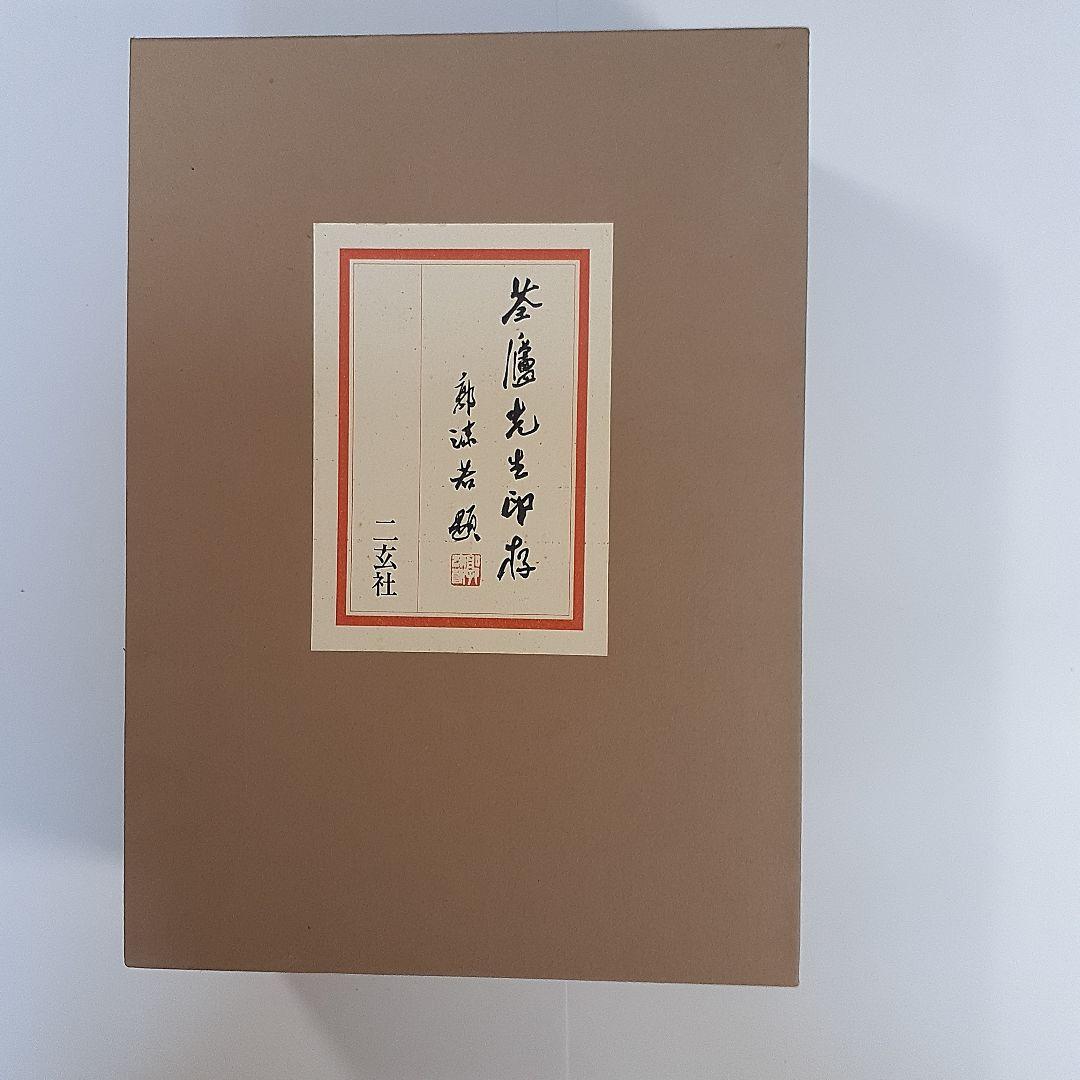 荃廬先生印存
郭沫若題
二玄社